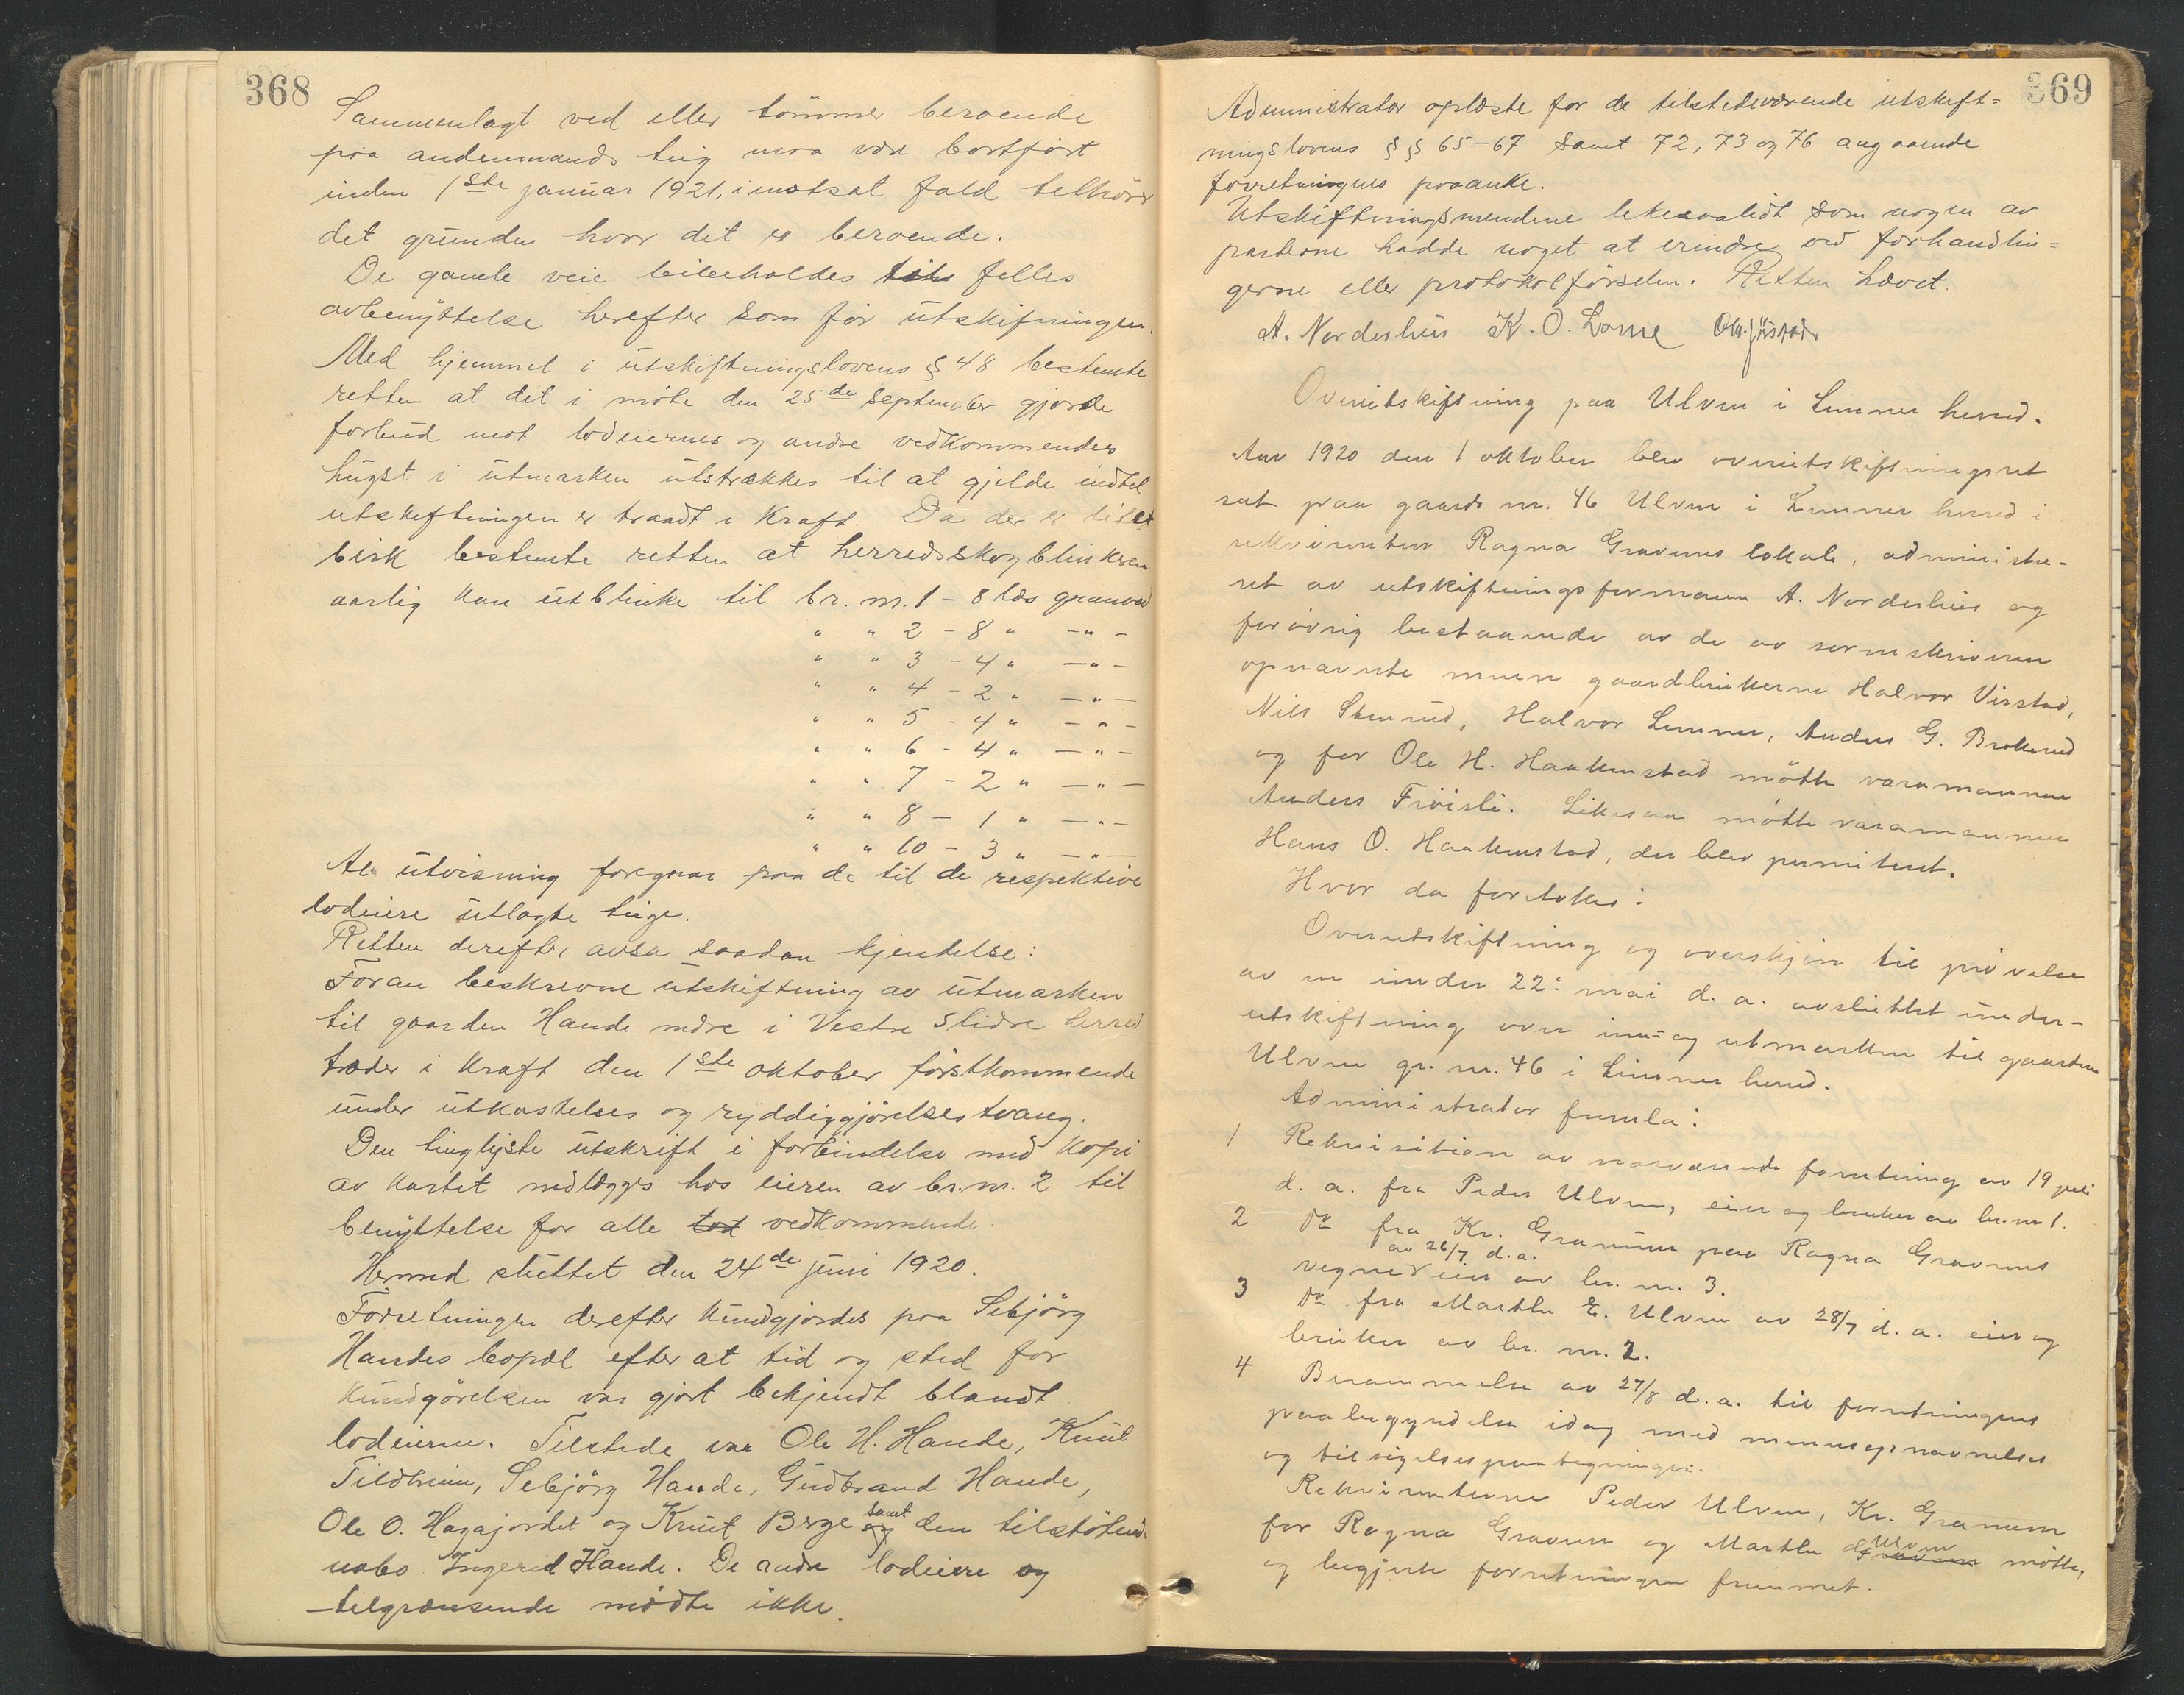 368
Sammenlagt ved eller tömmer beroende
paa andenmands teig maa være bortfört
inden 1ste januar 1921, i motsat fald tilhörer
det grunden hvor det er beroende.
De gamle veie bibeholdes til felles
avbenyttelse herefter som för utskifningen.
Med hjemmel i utskiftningslovens § 48 bestemte
retten at det i möte den 25de september gjorde
forbud mot lodeiernes og andre vedkommendes
hugst i utmarken utstrækkes til at gjelde indtil
utskiftningen er traadt i kraft. Da der er litet
birk bestemte retten at herredsskogblinkeren
aarlig kan utblinke til br. nr. 1 - 8 læs granved
" " 2 - 8 " - " -
" " 3 - 4 " - " -
" " 4 - 2 " - " -
" " 5 - 4 " - " -
" " 6 - 4 " - " -
" " 7 - 2 " - " -
" " 8 - 1 " - " -
" " 10 - 3 " - " -
Al utvisning foregaar paa de til de respektive
lodeiere utlagte teige.
Retten derefter avsa saadan kjendelse:
Foran beskrevne utskiftning av utmarken
til gaarden Hande nedre i Vestre Slidre herred
træder i kraft den 1ste oktober förstkommende
under utkastelses og ryddiggjörelsestvang.
Den tinglyste utskrift i forbindelse med kopi
av kartet nedlægges hos eieren av br. nr. 2 til
benyttelse for alle vedkommende.
Hermed sluttet den 24de juni 1920.
Forretningen derefter kundgjordes paa Sebjörg
Handes bopæl efter at tid og sted for
kundgörelsen var gjort bekjendt blandt
lodeierne. Tilstede var Ole H. Hande, Knut
Tildheim, Sebjörg Hande, Gudbrand Hande,
Ole O. Hagajordet og Knut Berge samt den tilstötende
nabo Ingerid Hande. De andre lodeiere og
tilgrænsende mödte ikke.
369
Administrator oplæste for de tilstedeværende utskift=
ningslovens §§ 65-67 samt 72, 73 og 76 angaaende
forretningens paaanke.
Utskiftningsmendene likesaalidt som nogen av
parterne hadde noget at erindre ved forhandlin=
gerne eller protokolförselen. Retten hævet.
A. Nordeshus K. O. Lome
Overutskiftning paa Ulven i Lunner herred.
Aar 1920 den 1 oktober blev overutskiftningsret
sat paa gaards nr. 46 Ulven i Lunner herred i
rekvirenten Ragna Gravens lokale, administre-
ret av utskiftningsformann A. Nordeshus og
forövrig bestaaende av de av sorenskriveren
opnævnte menn gaardbrukerne Halvor Virstad,
Nils Stenrud, Halvor Lunner, Anders G. Brokerud
og for Ole H. Haakenstad mötte varamannen
Anders Fröisli. Likesaa mötte varamannen
Hans O. Haakenstad, der blev permiteret.
Hvor da foretokes:
Overutskiftning og overskjön til prövelse
av en under 22: mai d. a. avsluttet under-
utskiftning over inn- og utmarken til gaarden
Ulven gr. nr. 46 i Lunner herred.
Administrator fremla:
1 Rekvisition av nærværende forretning av 19 juli
d. a. fra Peder Ulven, eier og bruker av br. nr 1.
2 Do fra Kr. Granum paa Ragna Gravens
av 26/7 d. a.
vegne eier av br. nr. 3.
3 Do fra Marthe E. Ulven av 28/7 d. a. eier og
bruker av br. nr. 2.
4 Berammelse av 27/8 d. a. til forretningens
paabegyndelse idag med mennsopnævnelses
og tilsigelsespaategninger.
Rekvirenterne Peder Ulven, Kr. Granum
for Ragna Graven og Marthe Ulven mötte,
og begjærte forretningen fremmet.